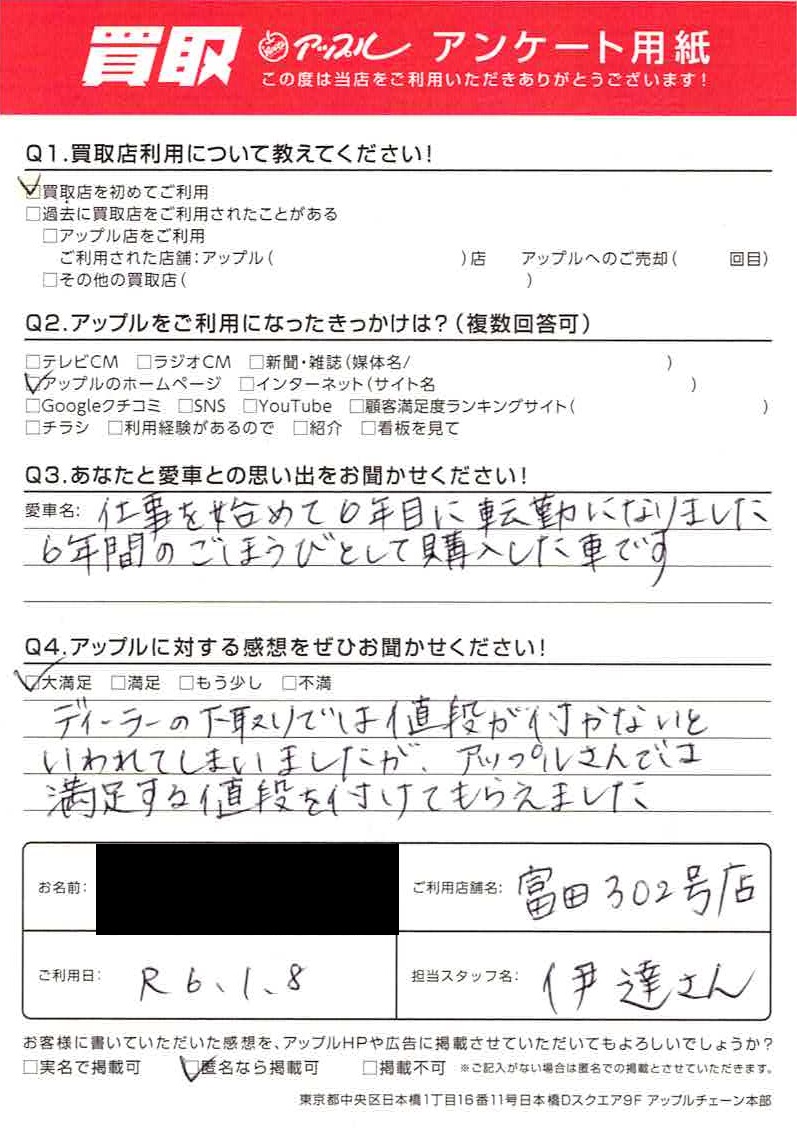 買取 アップル アンケート用紙
この度は当店をご利用いただきありがとうございます！
Q1.買取店利用について教えてください！
☑買取店を初めてご利用
□過去に買取店をご利用されたことがある
□アップル店をご利用
ご利用された店舗：アップル（ ）店 アップルへのご売却（ 回目）
□その他の買取店（ ）
Q2.アップルをご利用になったきっかけは？（複数回答可）
□テレビCM □ラジオCM □新聞・雑誌（媒体名/ ）
☑アップルのホームページ □インターネット（サイト名 ）
□Googleクチコミ □SNS □YouTube □顧客満足度ランキングサイト（ ）
□チラシ □利用経験があるので □紹介 □看板を見て
Q3.あなたと愛車との思い出をお聞かせください！
愛車名： 仕事を始めて6年目に転勤になりました
6年間のごほうびとして購入した車です
Q4.アップルに対する感想をぜひお聞かせください！
☑大満足 □満足 □もう少し □不満
ディーラーの下取りでは値段が付かないと
いわれてしまいましたが、アップルさんでは
満足する値段を付けてもらえました
お名前： ご利用店舗名： 富田302号店
ご利用日： R6、1、8 担当スタッフ名： 伊達さん
お客様に書いていただいた感想を、アップルHPや広告に掲載させていただいてもよろしいでしょうか？
□実名で掲載可 ☑匿名なら掲載可 □掲載不可 ※ご記入がない場合は匿名での掲載とさせていただきます。
東京都中央区日本橋1丁目16番11号日本橋Dスクエア9F アップルチェーン本部